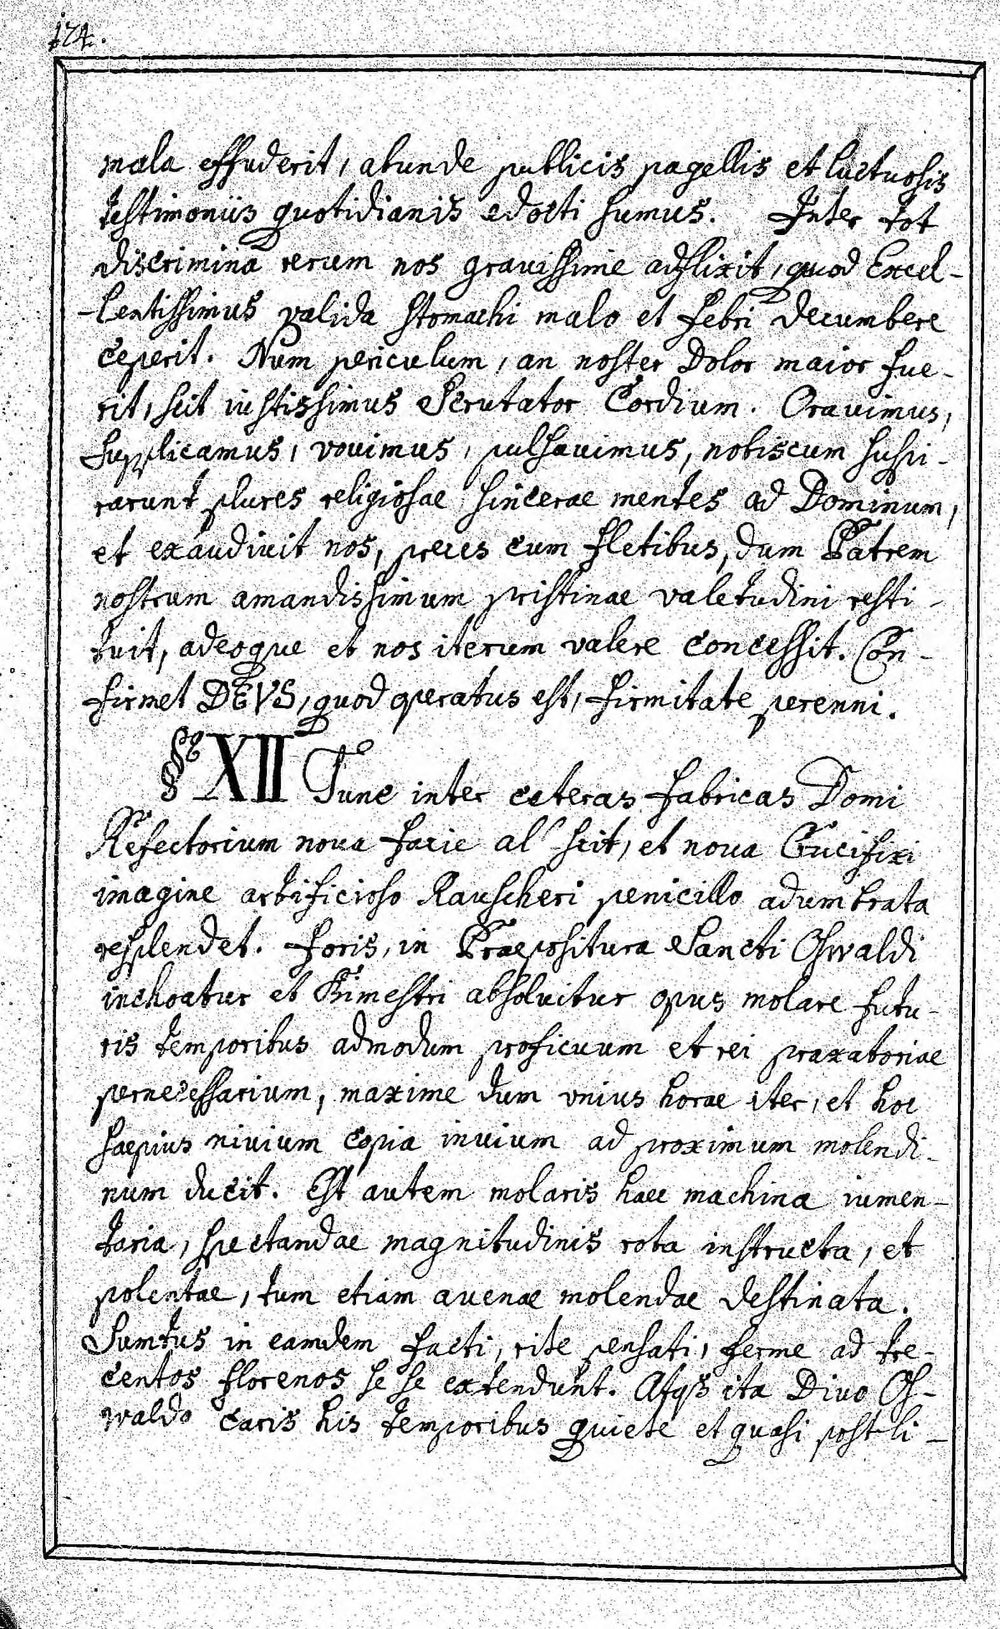 174.
mala effuderit, abunde publicis pagellis et luctuosis
testimoniis quotidianis edocti sumus. Inter tot
discrimina rerum nos gravissime adflixit, quod Excel-
-lentissimus valida stomachi malo et febri decumbere
ceperit. Num periculum, an noster dolor maior fue-
rit, scit iustissimus Scrutator Cordium. Oravimus,
supplicamus, vovimus, pulsavimus, nobiscum suspi-
rarunt plures religiosae sincerae mentes ad Dominum,
et exaudivit nos, preces cum fletibus, dum Patrem
nostrum amandissimum pristinae valetudini resti-
tuit, adeoque et nos iterum valere concessit. Con-
firmet DEVS, quod operatus est, firmitate perenni.
§ XII Tunc inter ceteras fabricas Domi
Refectorium nova facie scit, et nova Crucifixi
imagine artificioso Rauscheri penicillo adumbrata
resplendet. Foris, in Praepositura Sancti Oswaldi
inchoatur et Bimestri absolvitur opus molare futu-
ris temporibus admodum proficuum et rei praxatoriae
pernecessarium, maxime dum vnius horae iter, et hoc
saepius nivium copia invium ad proximum molendi-
num ducit. Est autem molaris haec machina iumen-
taria, spectandae magnitudinis rota instructa, et
polentae, tum etiam avenae molendae destinata.
Sumtus in eamdem facti, rite pensati, ferme ad tre-
centos florenos se se extendunt. Atqs ita Divo Os-
waldo caris his temporibus quiete et quasi postli-